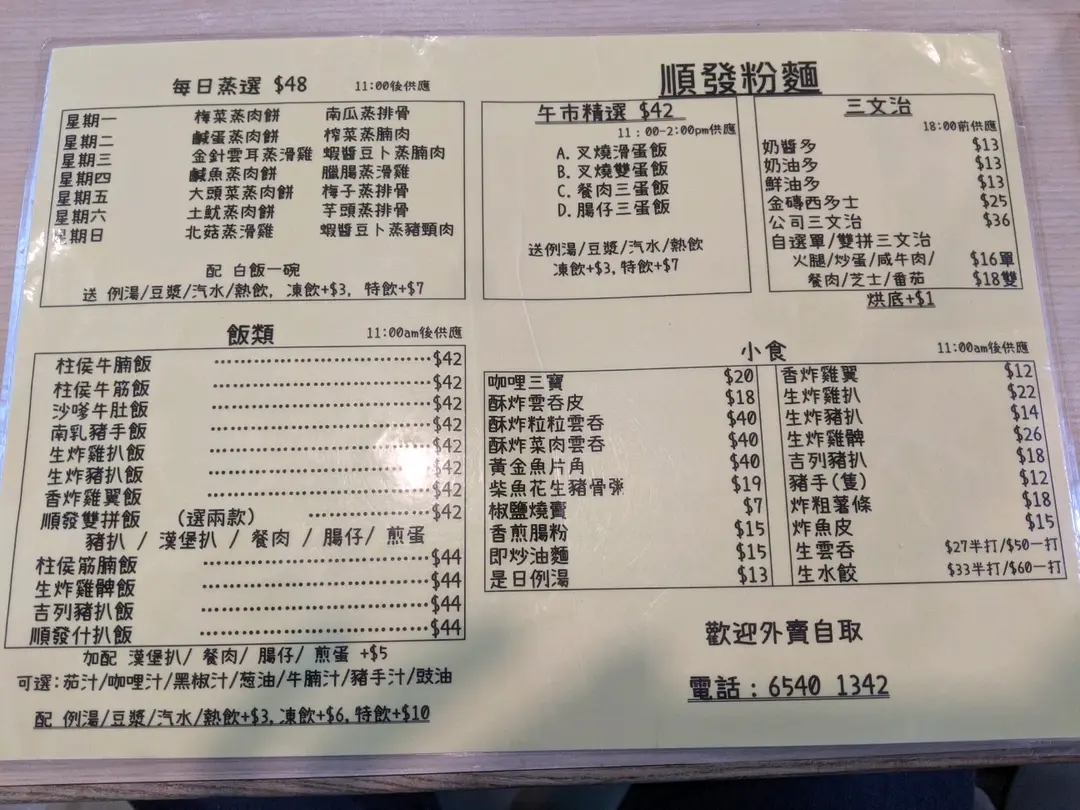 順發粉麵
每日蒸選 $48 11:00後供應
星期一 梅菜蒸肉餅 南瓜蒸排骨
星期二 鹹蛋蒸肉餅 榨菜蒸腩肉
星期三 金針雲耳蒸滑雞 蝦醬豆卜蒸腩肉
星期四 鹹魚蒸肉餅 臘腸蒸滑雞
星期五 大頭菜蒸肉餅 梅子蒸排骨
星期六 土魷蒸肉餅 芋頭蒸排骨
星期日 北菇蒸滑雞 蝦醬豆卜蒸豬頸肉
配 白飯一碗
送 例湯/豆漿/汽水/熱飲, 凍飲+$3, 特飲+$7
午市精選 $42
11：00-2:00pm供應
A. 叉燒滑蛋飯
B. 叉燒雙蛋飯
C. 餐肉三蛋飯
D. 腸仔三蛋飯
送例湯/豆漿/汽水/熱飲
凍飲+$3,特飲+$7
三文治
18:00前供應
奶醬多 $13
奶油多 $13
鮮油多 $13
金磚西多士 $25
公司三文治 $36
自選單/雙拼三文治
火腿/炒蛋/咸牛肉/ $16單
餐肉/芝士/番茄 $18雙
烘底+$1
飯類 11:00am後供應
柱侯牛腩飯 $42
柱侯牛筋飯 $42
沙嗲牛肚飯 $42
南乳豬手飯 $42
生炸雞扒飯 $42
生炸豬扒飯 $42
香炸雞翼飯 $42
順發雙拼飯 (選兩款) $42
豬扒 / 漢堡扒 / 餐肉 / 腸仔/ 煎蛋
柱侯筋腩飯 $44
生炸雞髀飯 $44
吉列豬扒飯 $44
順發什扒飯 $44
加配 漢堡扒/ 餐肉/ 腸仔/ 煎蛋 +$5
可選:茄汁/咖哩汁/黑椒汁/葱油/牛腩汁/豬手汁/豉油
配 例湯/豆漿/汽水/熱飲+$3,凍飲+$6,特飲+$10
小食 11:00am後供應
咖哩三寶 $20
酥炸雲吞皮 $18
酥炸粒粒雲吞 $40
酥炸菜肉雲吞 $40
黃金魚片角 $40
柴魚花生豬骨粥 $19
椒鹽燒賣 $7
香煎腸粉 $15
即炒油麵 $15
是日例湯 $13
香炸雞翼 $12
生炸雞扒 $22
生炸豬扒 $14
生炸雞髀 $26
吉列豬扒 $18
豬手(隻) $12
炸粗薯條 $18
炸魚皮 $15
生雲吞 $27半打/$50一打
生水餃 $33半打/$60一打
歡迎外賣自取
電話：6540 1342